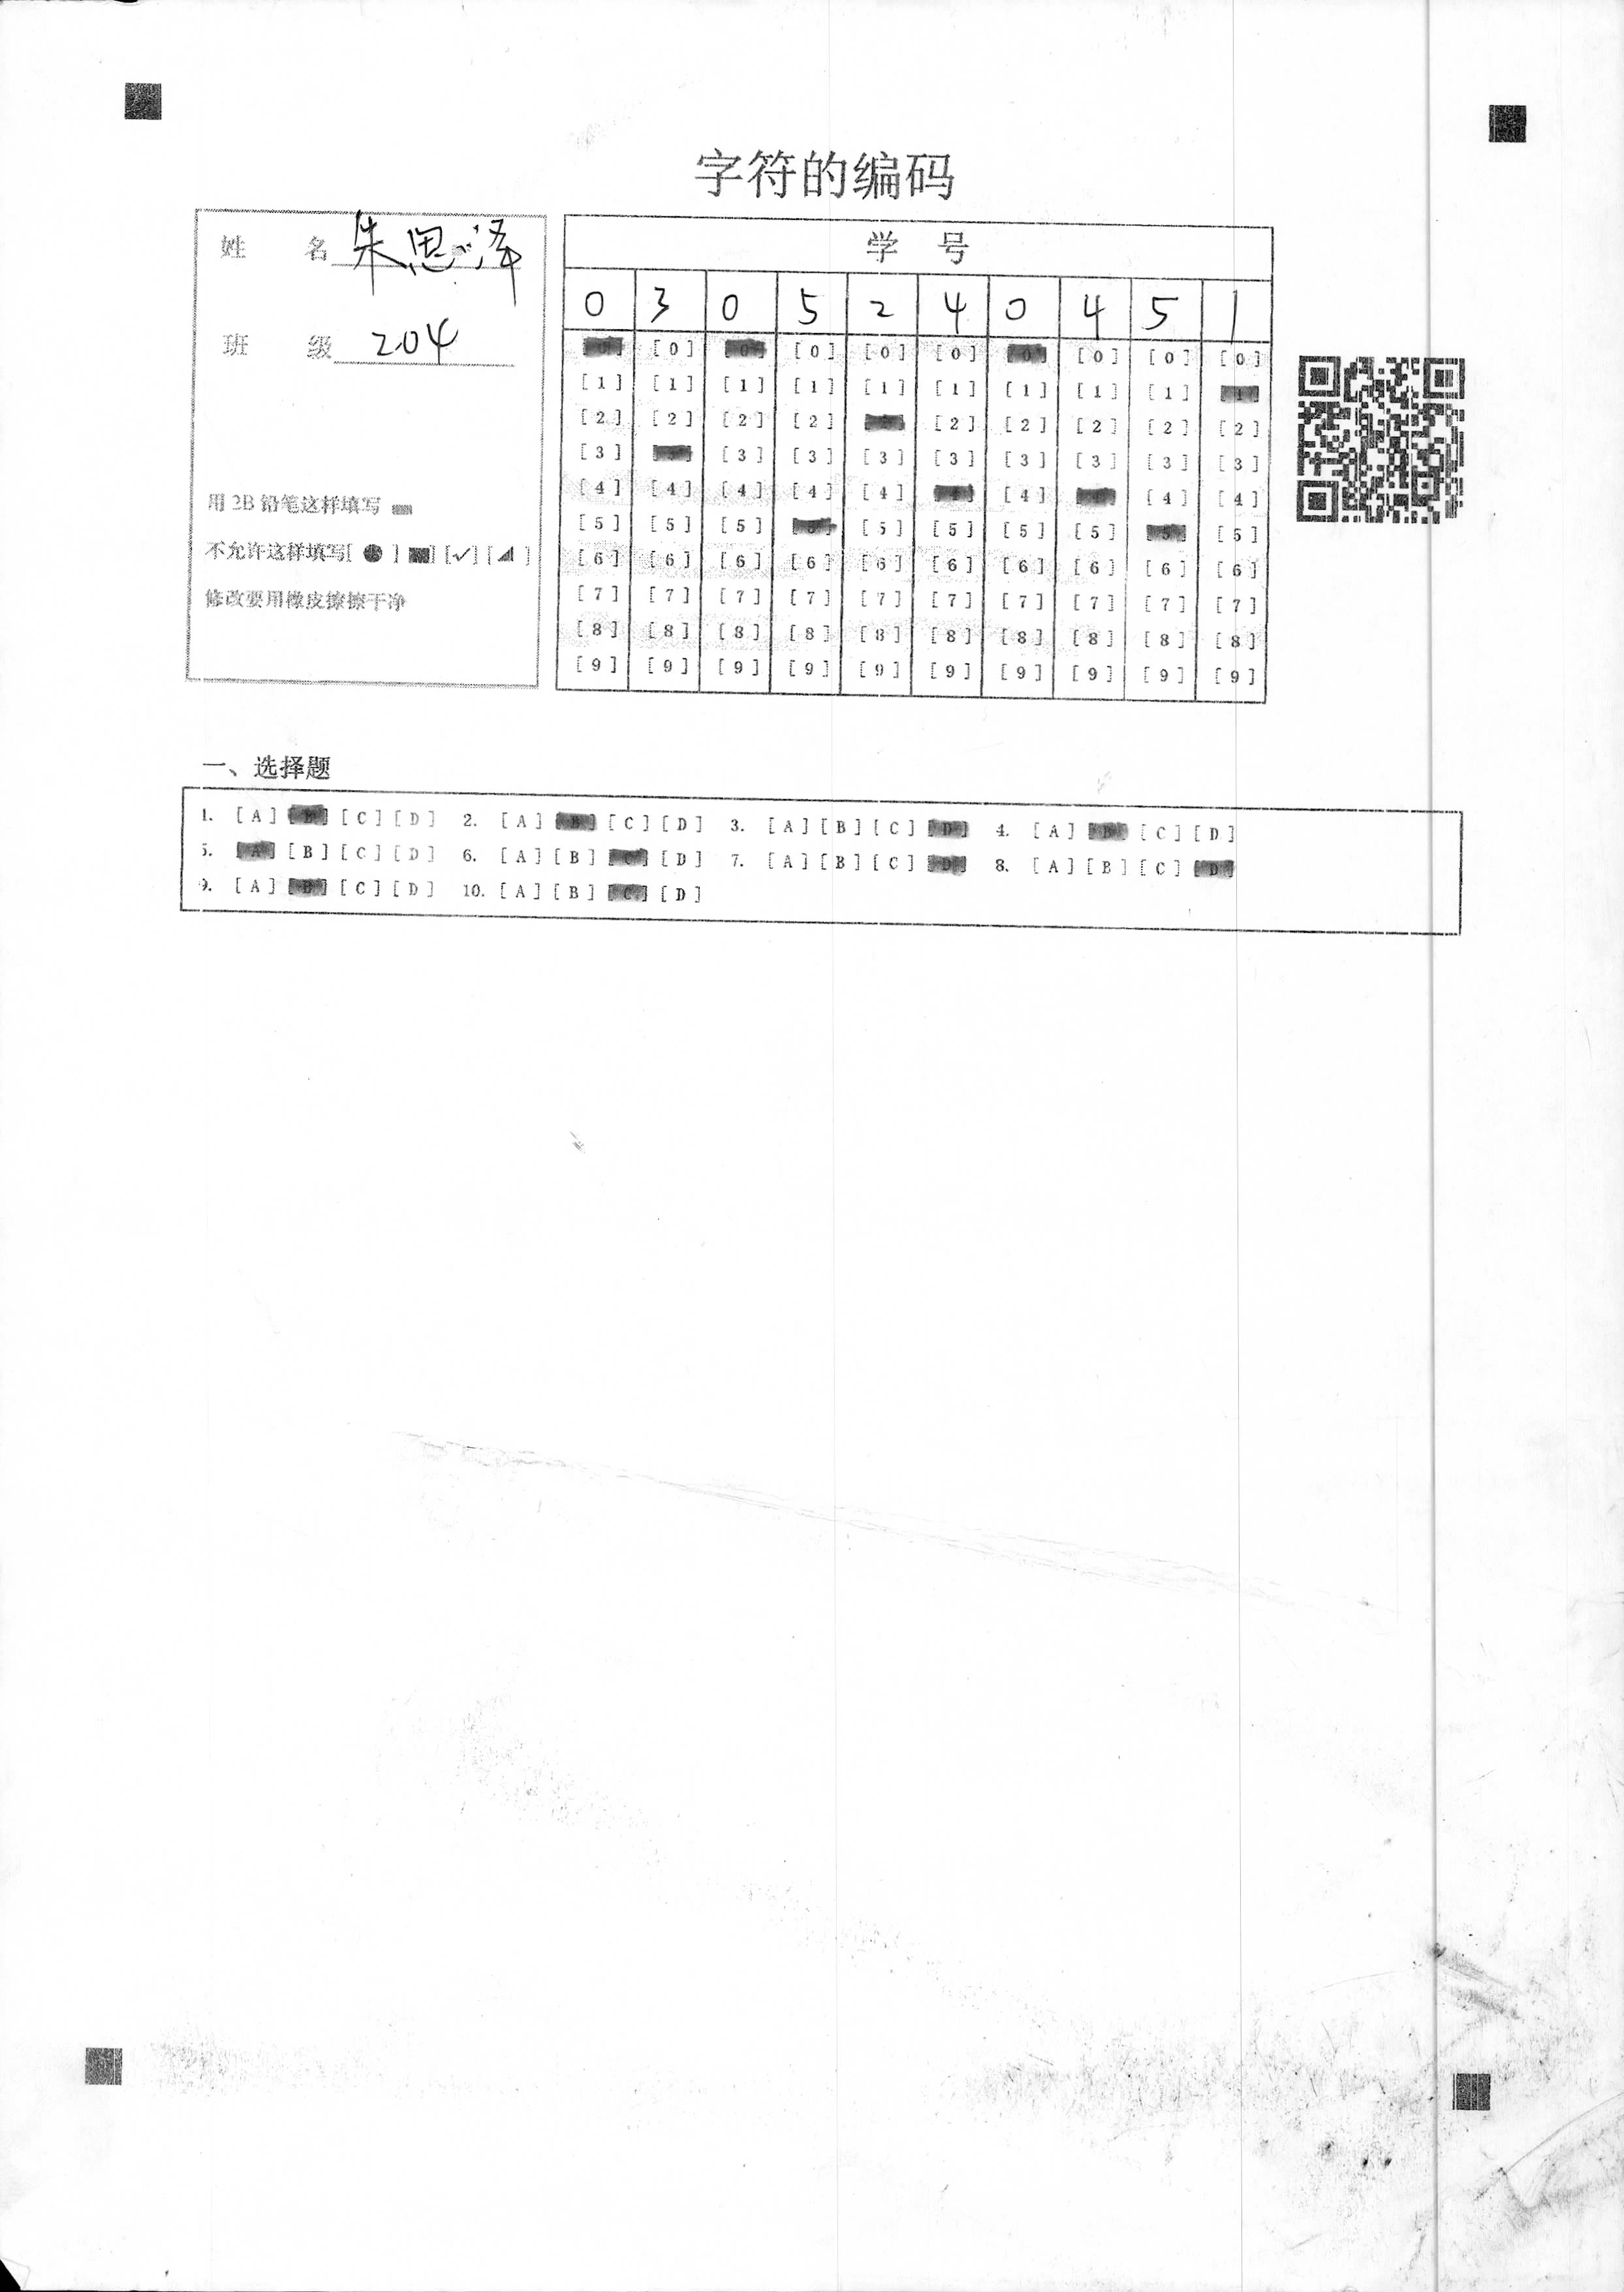 字符的编码
姓 名 朱思泽
班 级 204
用 2B 铅笔这样填写
不允许这样填写[ ● ] [■] [✓] [◢ ]
修改要用橡皮擦擦干净
学 号
0 3 0 5 2 4 0 4 5 1
[0] [0] [0] [0] [0] [0] [0] [0] [0] [0]
[1] [1] [1] [1] [1] [1] [1] [1] [1] [1]
[2] [2] [2] [2] [2] [2] [2] [2] [2]
[3] [3] [3] [3] [3] [3] [3] [3] [3]
[4] [4] [4] [4] [4] [4] [4] [4] [4]
[5] [5] [5] [5] [5] [5] [5] [5] [5]
[6] [6] [6] [6] [6] [6] [6] [6] [6] [6]
[7] [7] [7] [7] [7] [7] [7] [7] [7] [7]
[8] [8] [8] [8] [8] [8] [8] [8] [8] [8]
[9] [9] [9] [9] [9] [9] [9] [9] [9] [9]
一、选择题
1. [A] [B] [C] [D] 2. [A] [B] [C] [D] 3. [A] [B] [C] [D] 4. [A] [B] [C] [D]
5. [A] [B] [C] [D] 6. [A] [B] [C] [D] 7. [A] [B] [C] [D] 8. [A] [B] [C] [D]
9. [A] [B] [C] [D] 10. [A] [B] [C] [D]